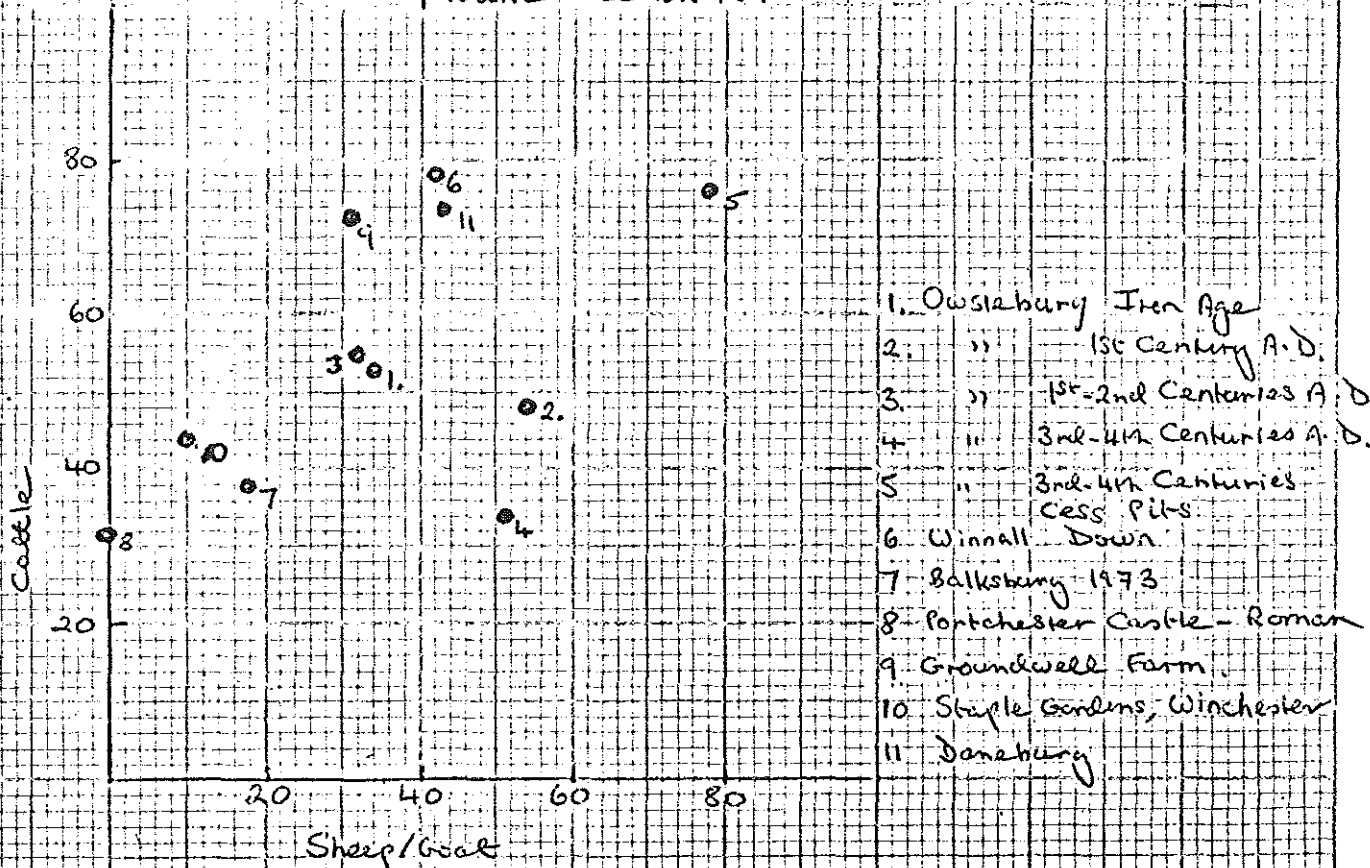 80
6
5
11
9
60
3
1.
2.
40
10
7
4
8
20
20
40
60
80
Cattle
Sheep/Goat
1. Owslebury Iron Age
2. " 1st Century A.D.
3. " 1st-2nd Centuries A.D
4 " 3rd-4th Centuries A.D.
5 " 3rd-4th Centuries
Cess Pits
6 Winnall Down
7 Balksbury 1973
8 Portchester Castle - Roman
9. Groundwell Farm.
10 Staple Gardens, Winchester
11 Danebury